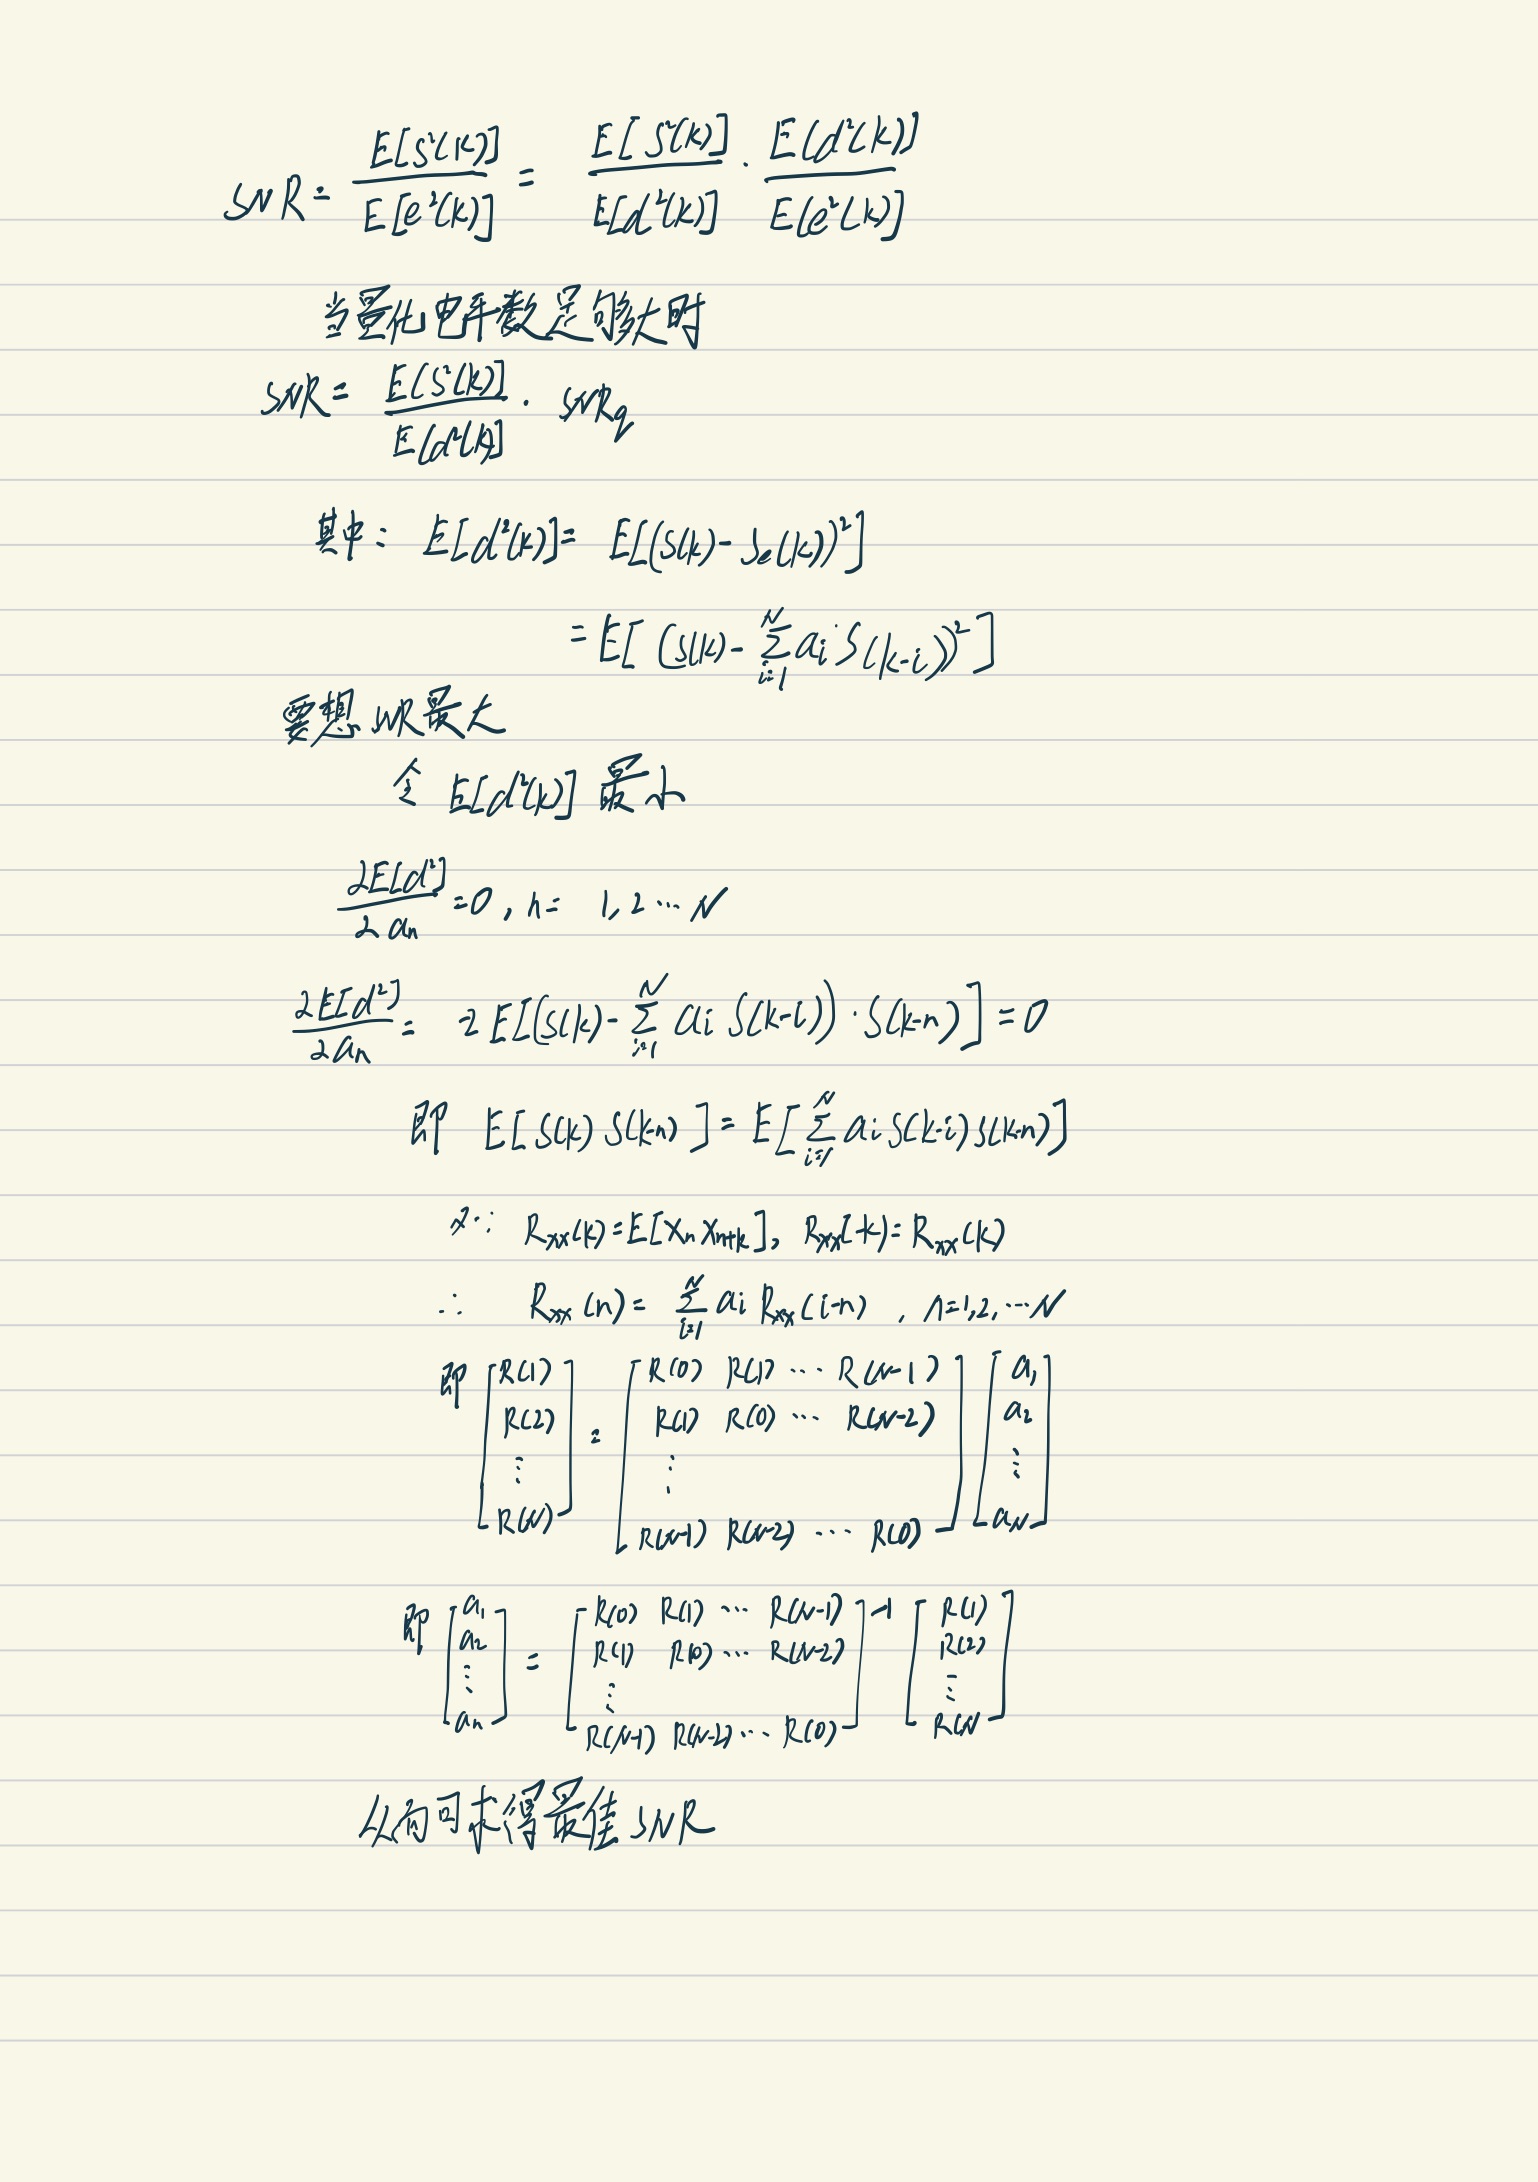 SNR = E[S²(k)] / E[e²(k)] = E[S²(k)] / E[d²(k)] · E[d²(k)] / E[e²(k)]
当量化电平数足够大时
SNR = E[S²(k)] / E[d²(k)] · SNR_q
其中: E[d²(k)] = E[(S(k) - S_e(k))²]
= E[(S(k) - ∑_{i=1}^{N} a_i S(k-i))²]
要想SNR最大
令 E[d²(k)] 最小
∂E[d²] / ∂a_n = 0, n = 1, 2 ⋯ N
∂E[d²] / ∂a_n = -2 E[(S(k) - ∑_{i=1}^{N} a_i S(k-i)) · S(k-n)] = 0
即 E[S(k) S(k-n)] = E[∑_{i=1}^{N} a_i S(k-i) S(k-n)]
又∵ R_xx(k) = E[X_n X_{n+k}], R_xx(-k) = R_xx(k)
∴ R_xx(n) = ∑_{i=1}^{N} a_i R_xx(i-n), n = 1, 2, ⋯ N
即 [R(1) R(2) ⋮ R(N)] = [R(0) R(1) ⋯ R(N-1) R(1) R(0) ⋯ R(N-2) ⋮ R(N-1) R(N-2) ⋯ R(0)] [a_1 a_2 ⋮ a_N]
即 [a_1 a_2 ⋮ a_n] = [R(0) R(1) ⋯ R(N-1) R(1) R(0) ⋯ R(N-2) ⋮ R(N-1) R(N-2) ⋯ R(0)]⁻¹ [R(1) R(2) ⋮ R(N)]
从而可求得最佳SNR